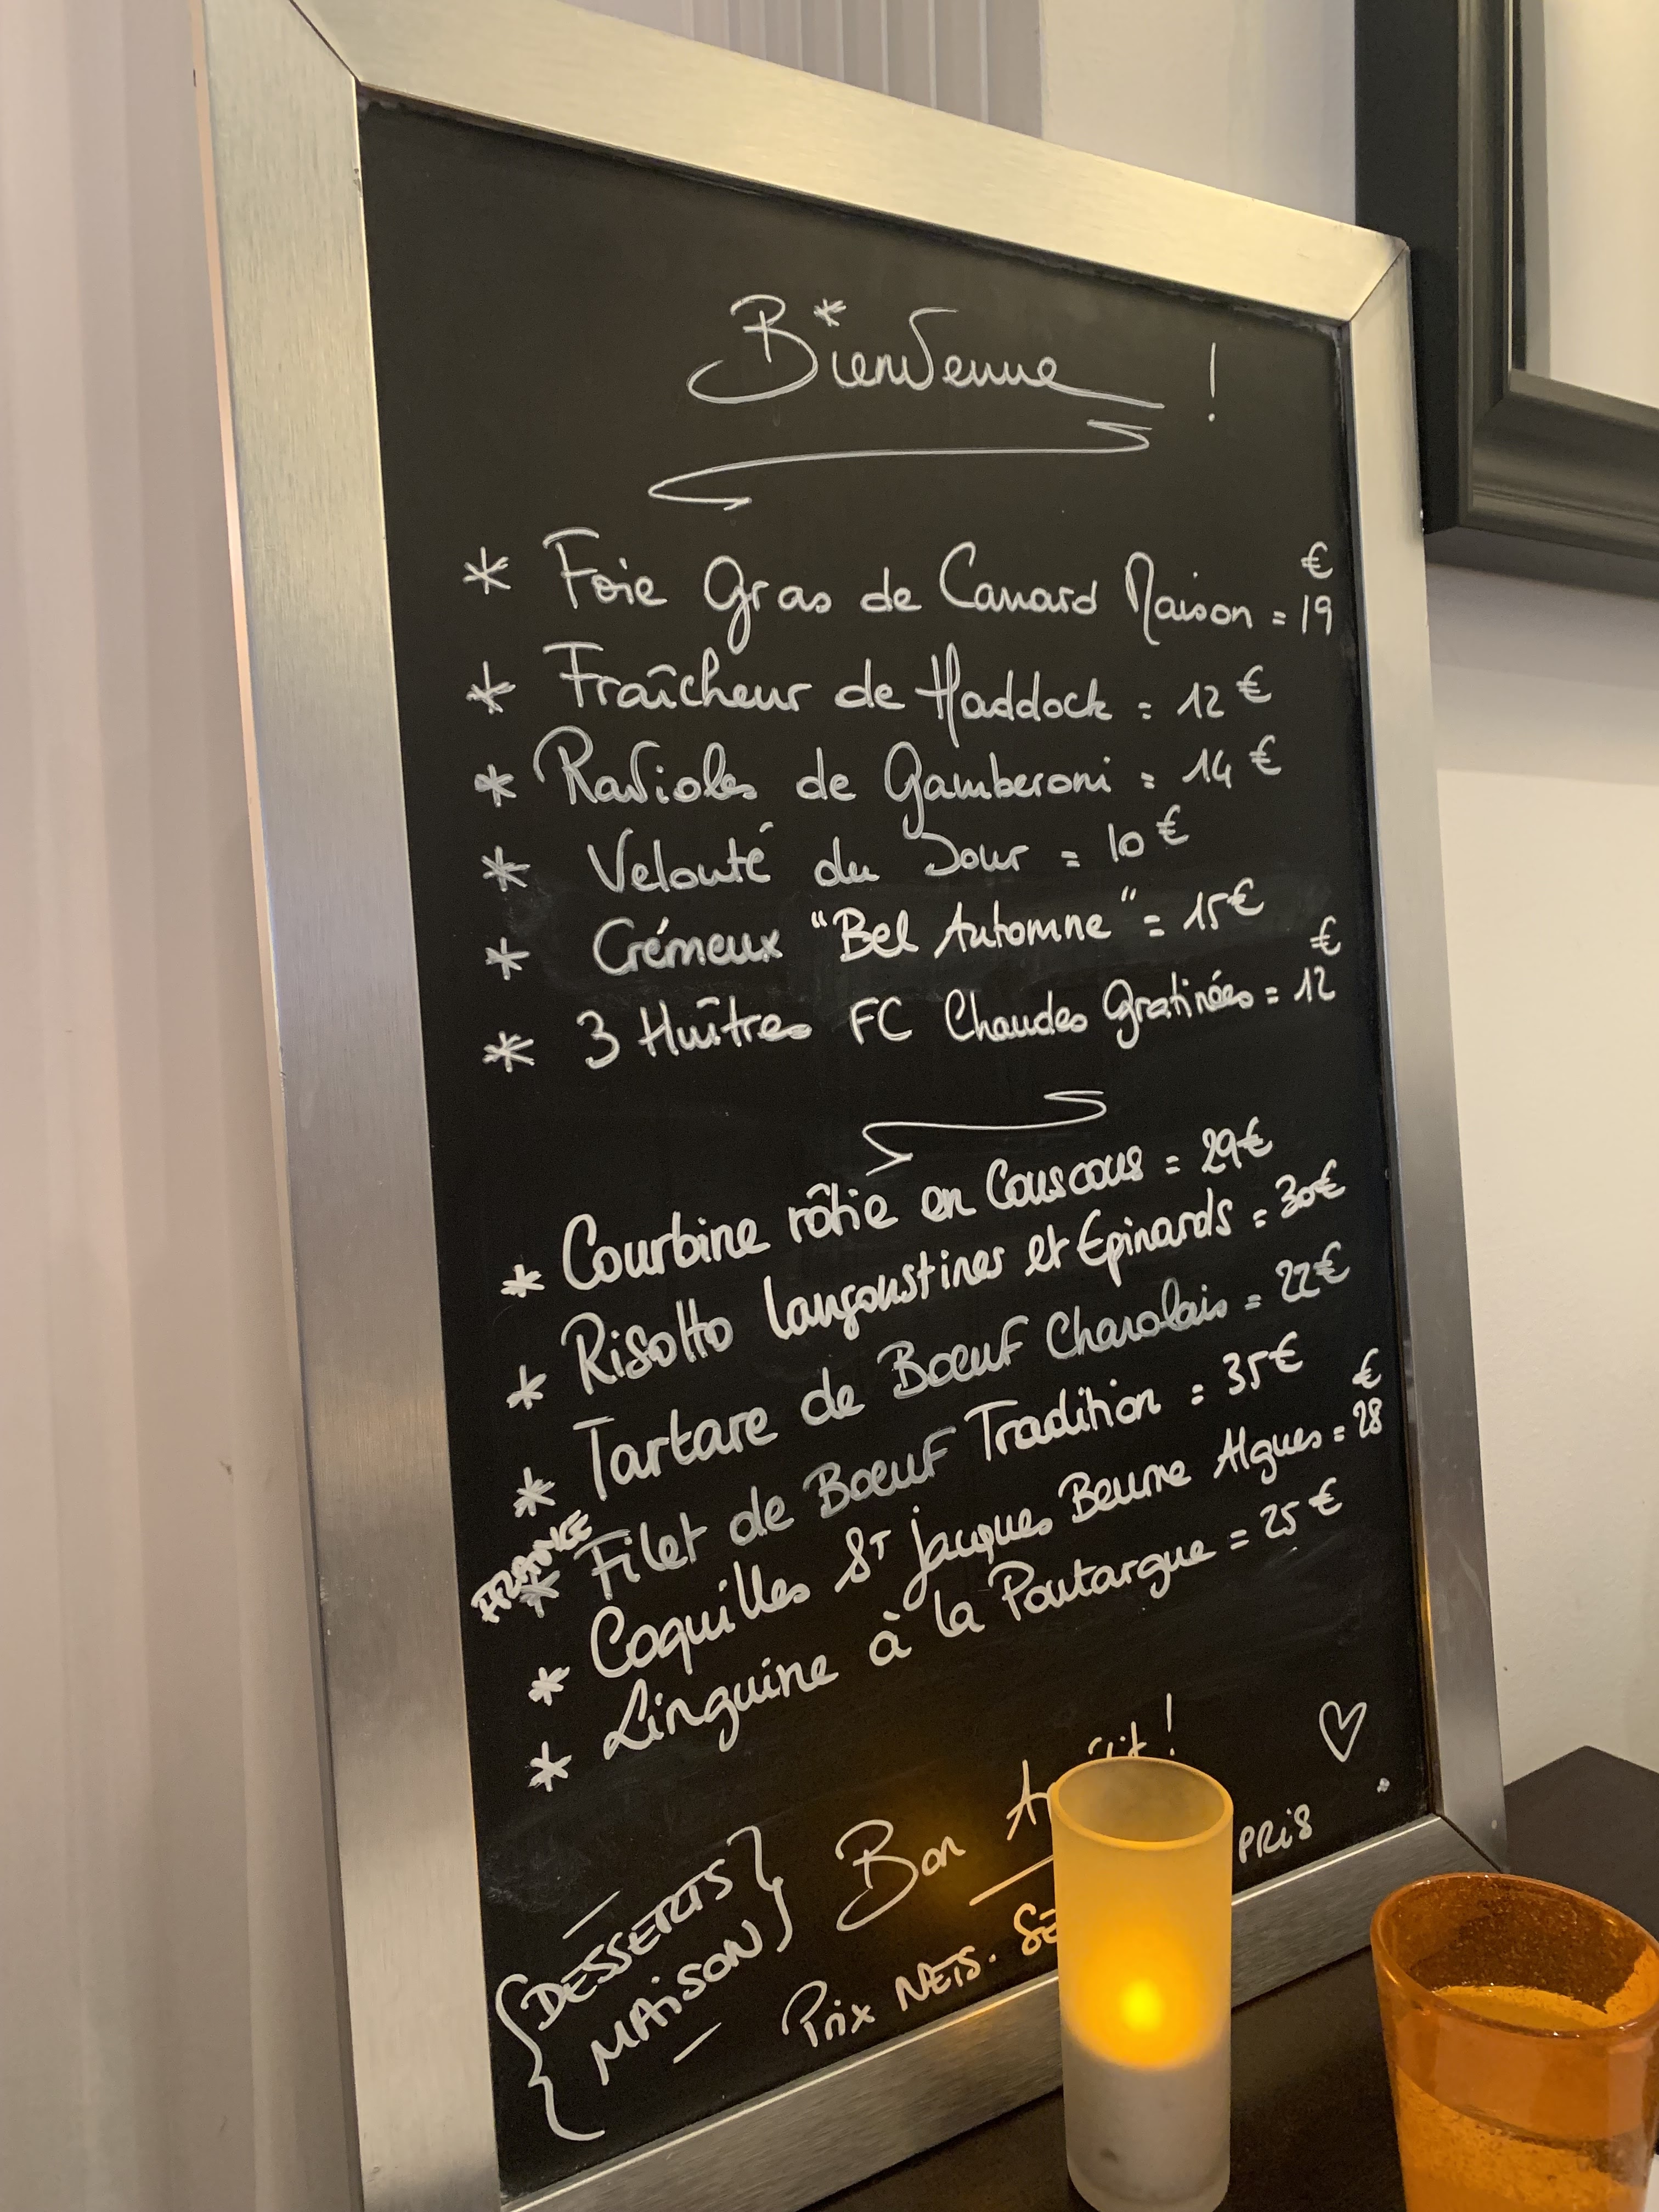 Bienvenue !
* Foie Gras de Canard Maison = 19 €
* Fraîcheur de Haddock = 12 €
* Ravioles de Gamberoni = 14 €
* Velouté du Jour = 10 €
* Crémeux "Bel Automne" = 15 €
* 3 Huîtres FC Chaudes Gratinées = 12 €
* Courbine rôtie en Couscous = 29 €
* Risotto langoustines et Epinards = 30 €
* Tartare de Boeuf Charolais = 22 €
FRANCE
* Filet de Boeuf Tradition = 35 €
* Coquilles St Jacques Beurre Algues = 28 €
* Linguine à la Poutargue = 25 €
Bon !
{DESSERTS
MAISON}
Prix NETS. PRIS